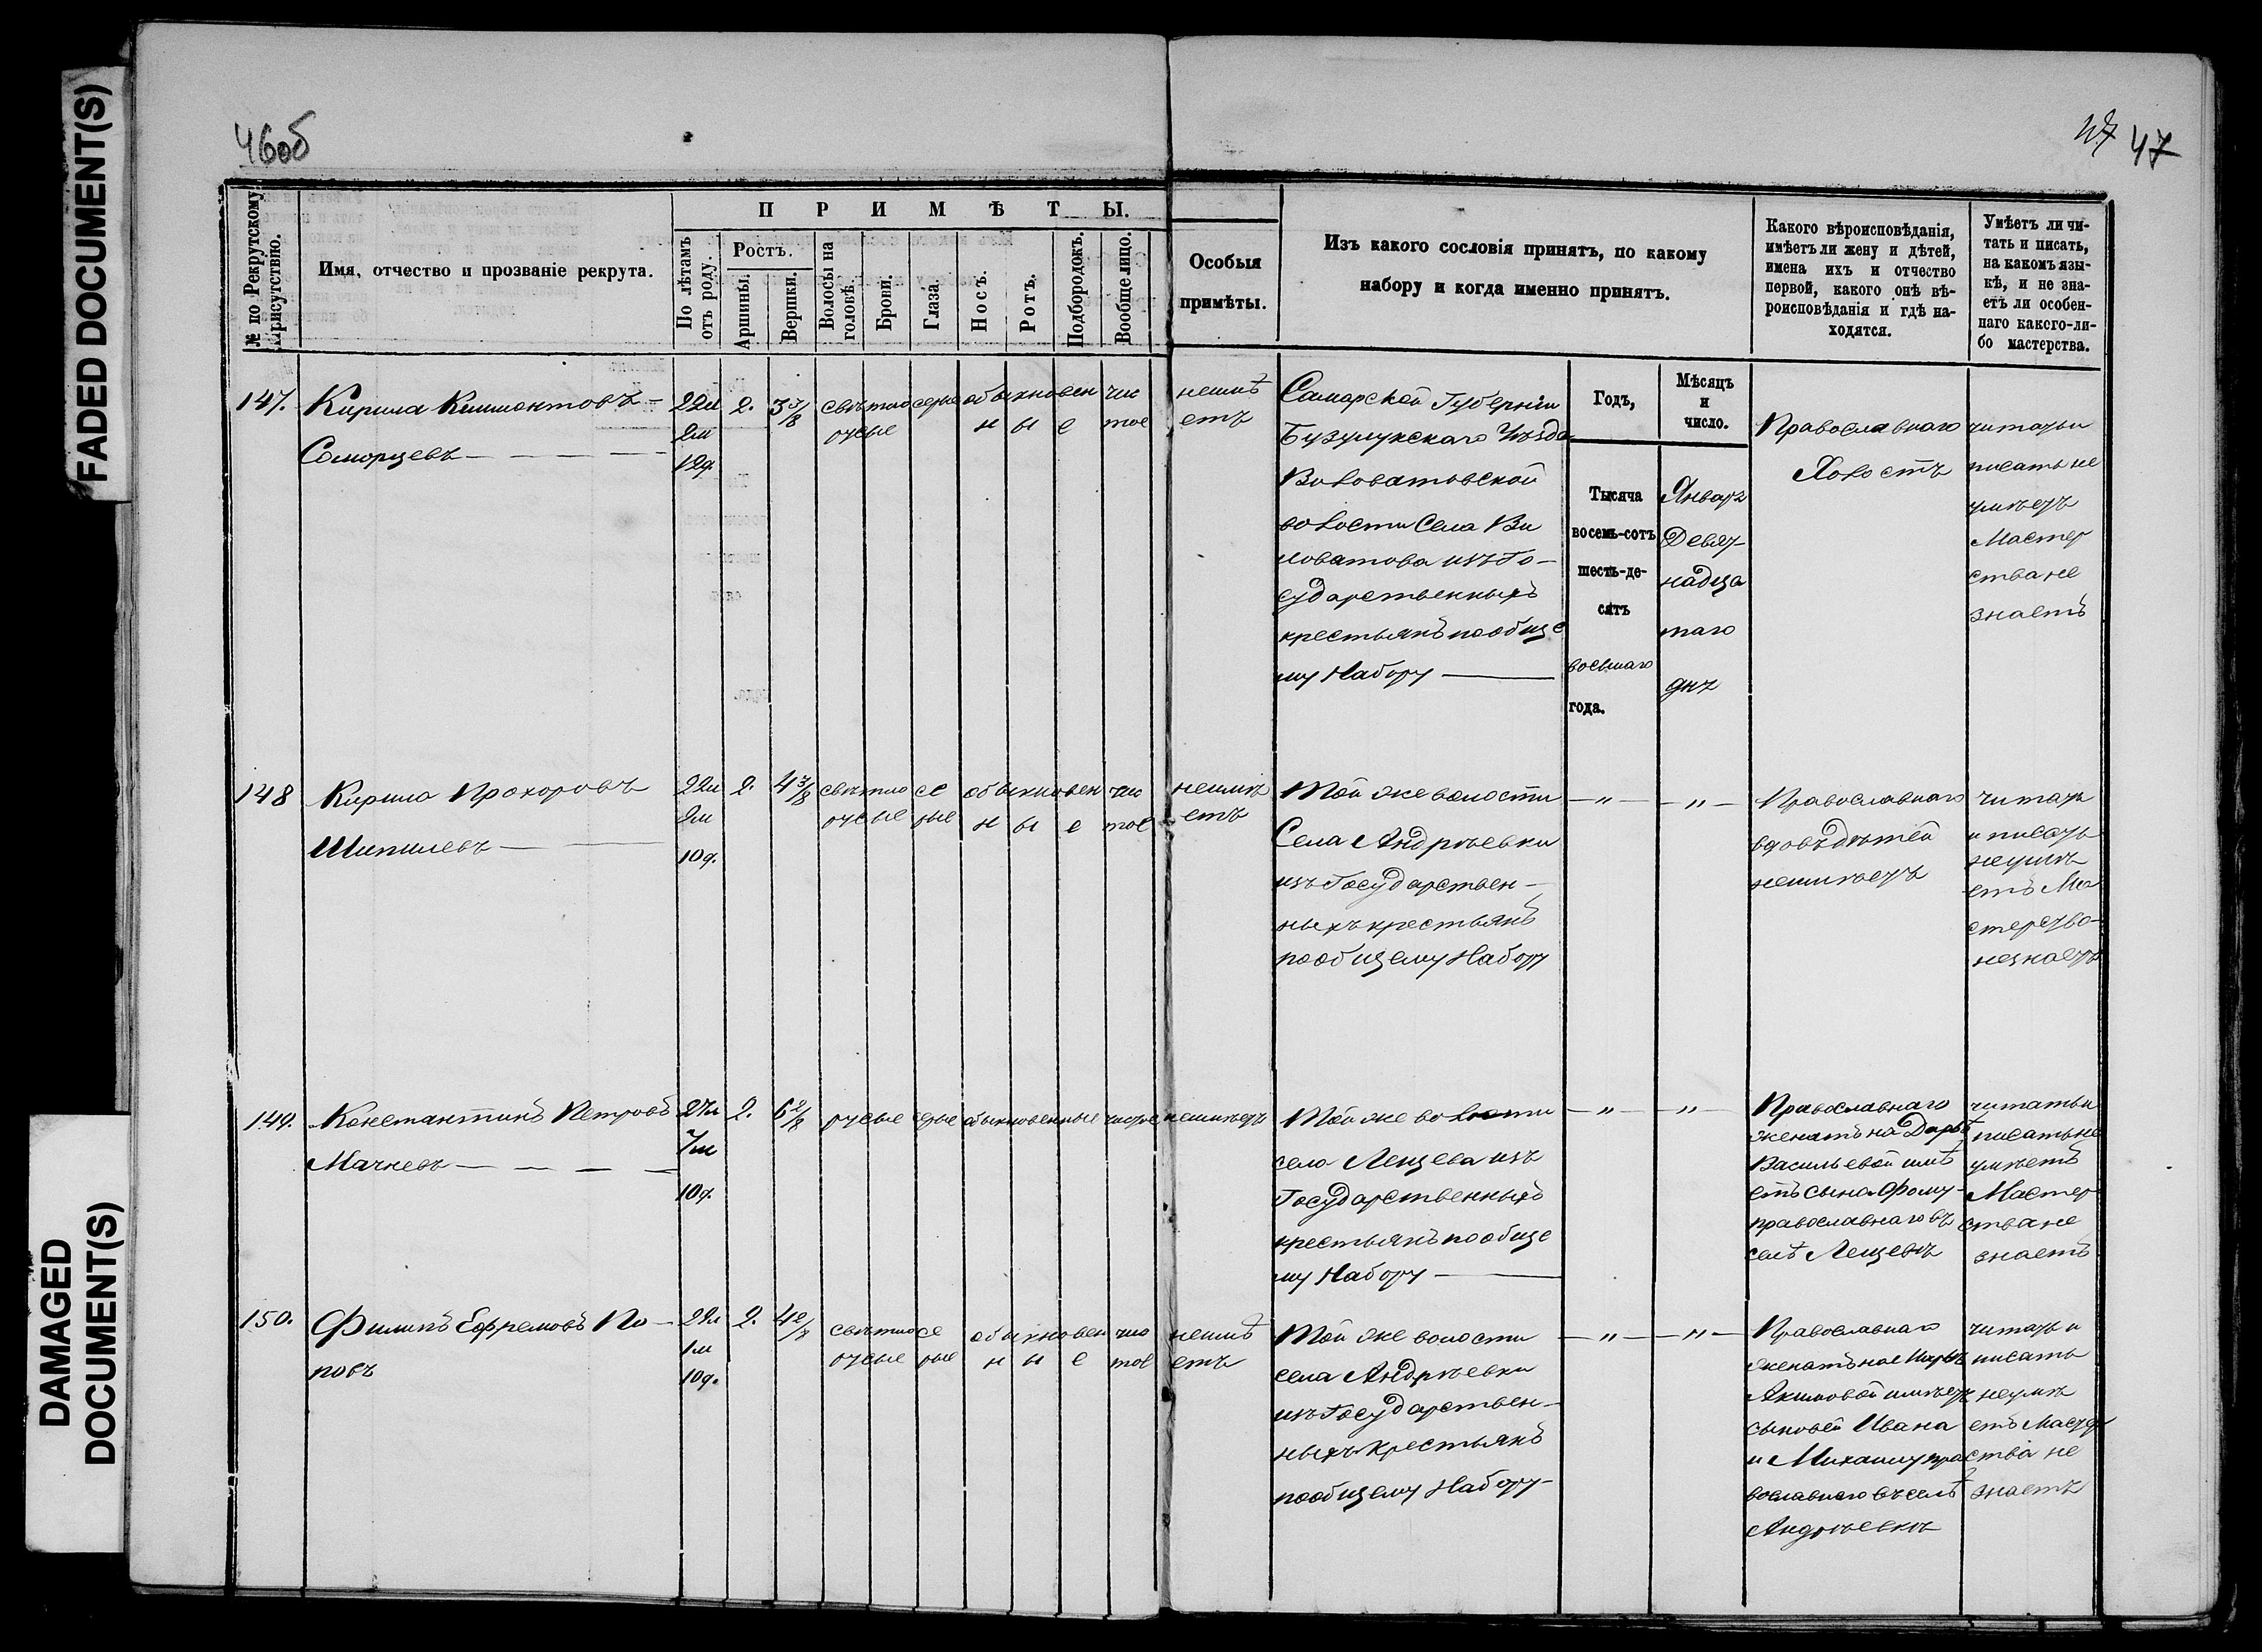 FADED DOCUMENT(S)
DAMAGED
DOCUMENT(S)
46об
47 47
№ по Рекрутскому
Присутствію.
Имя, отчество и прозваніе рекрута.
ПРИМѢТЫ.
По лѣтамъ
отъ роду.
Ростъ.
Аршины.
Вершки.
Волосы на
головѣ.
Брови.
Глаза.
Носъ.
Ротъ.
Подбородокъ.
Вообще лицо.
Особыя
примѣты.
Изъ какого сословія принятъ, по какому
набору и когда именно принятъ.
Какого вѣроисповѣданія,
имѣетъ ли жену и дѣтей,
имена ихъ и отчество
первой, какого онѣ вѣ-
роисповѣданія и гдѣ на-
ходятся.
Умѣетъ ли чи-
тать и писать,
на какомъ язы-
кѣ, и не зна-
етъ ли особен-
наго какого-ли-
бо мастерства.
147.
Кирила Климонтовъ —
Соморцевъ — — — —
22л
2м
12д.
2.
3 7/8
свѣтло
русые
серые
обыкновен
н ы е
чис
тое
неимѣ
етъ
Самарской Губерніи
Бузулукскаго Уѣзда
Виловатовской
волости Села Ви
ловатова изъ Го-
сударственныхъ
крестьянъ пообще
му Набору —
Годъ,
Тысяча
восемь-сотъ
шесть-де-
сятъ
восьмаго
года.
Мѣсяцъ
и
число.
Январ
Девят-
надца
таго
дня
Православнаго
Холостъ
читать и
писать не
умѣетъ
Мастер
ства не
знаетъ
148
Кирило Прохоровъ
Шипилевъ — —
22л
2м
10д.
2.
4 3/8
свѣтло
русые
се
рые
обыкновен
н ы е
чис
тое
неимѣ
етъ
Той же волости
Села Андрѣевки
изъ Государствен-
ныхъ крестьянъ
пообщему Набору
— „ — — „ —
Православнаго
вдовъ дѣтей
неимѣетъ
читать
и писать
неумѣ
етъ Ма
стерство
незнаетъ
149.
Константинъ Петровъ
Мачневъ — — — —
27л
7м
10д.
2.
6 2/8
русые
серые
обыкновенные
чистое
неимѣетъ
Той же волости
село Лещева изъ
Государственныхъ
крестьянъ пообще
му Набору —
— „ — — „ —
Православнаго
женатъ на Дарьѣ
Васильевой имѣ
етъ сына Фому-
православнаго въ
селѣ Лещевѣ
читать и
писать не
умѣетъ
Мастер
ства не
знаетъ
150.
Филипъ Ефремовъ По —
повъ
22л
1м
10д.
2.
4 2/8
свѣтло
русые
се
рые
обыкновен
н ы е
чис
тое
неимѣ
етъ
Той же волости
села Андрѣевки
изъ Государствен-
ныхъ Крестьянъ
пообщему Набору-
— „ — — „ —
Православнаго
женатъ на
Акимовой имѣетъ
сыновей Ивана
и Михаилу пра
вославнаго въ селѣ
Андрѣевкѣ
читать и
писать
неумѣ
етъ Мастер
ства не
знаетъ